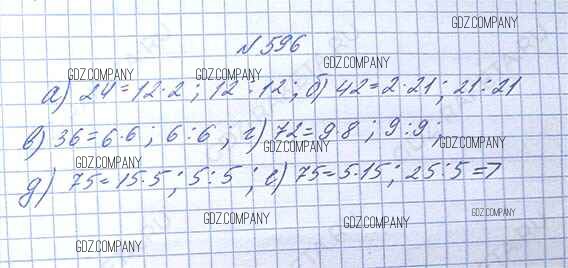 GDZ.COMPANY
№ 596
GDZ.COMPANY GDZ.COMPANY GDZ.COMPANY
а) 24 = 12·2 ; 12 : 12 ; б) 42 = 2·21 ; 21 : 21
в) 36 = 6·6 ; 6 : 6 ; г) 72 = 9·8 ; 9 : 9 ;
GDZ.COMPANY GDZ.COMPANY GDZ.COMPANY
д) 75 = 15·5 ; 5 : 5 ; е) 75 = 5·15 ; 25 : 5 = 7
GDZ.COMPANY GDZ.COMPANY
GDZ.COMPANY